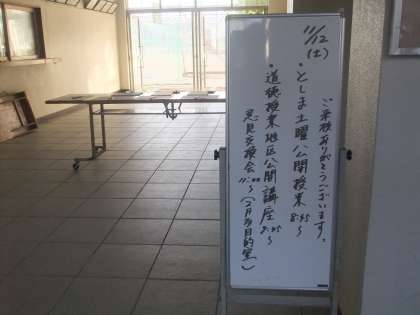 11/12(土)
ご来校ありがとうございます。
・としま土曜公開授業 8:45〜
・道徳授業地区公開講座 8:45〜
意見交換会 11:00〜(2F多目的室)